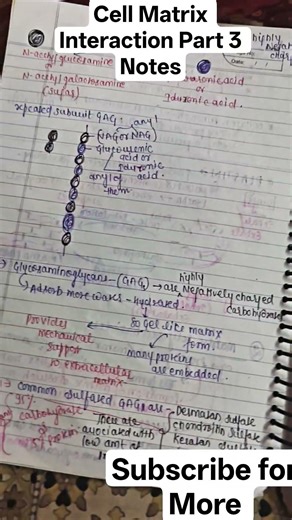 Cell Matrix
Interaction Part 3
Notes
highly
N-acetylglucosamine
or
N-acetylgalactosamine
(sugars)
iduronic acid.
repeated subunit GAG: any 1
(NAG or NAG)
acid or
iduronic
acid.
any 1 of
them
highly
Glycosaminoglycans - (GAG) → are Negatively charged
Carbohydrase
Adsorb more water - hydrated
So Gel like matrix
form.
Provides
mechanical
support
to extracellular
matrix
many proteins
are embedded.
Common sulfated GAG are
Dermatan sulfate
chondroitin sulfate
Keratan
Carbohydrase
They are
associated with
low amt of
protein
Subscribe for
More